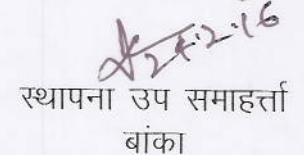 24.2.16
स्थापना उप समाहर्त्ता
बांका